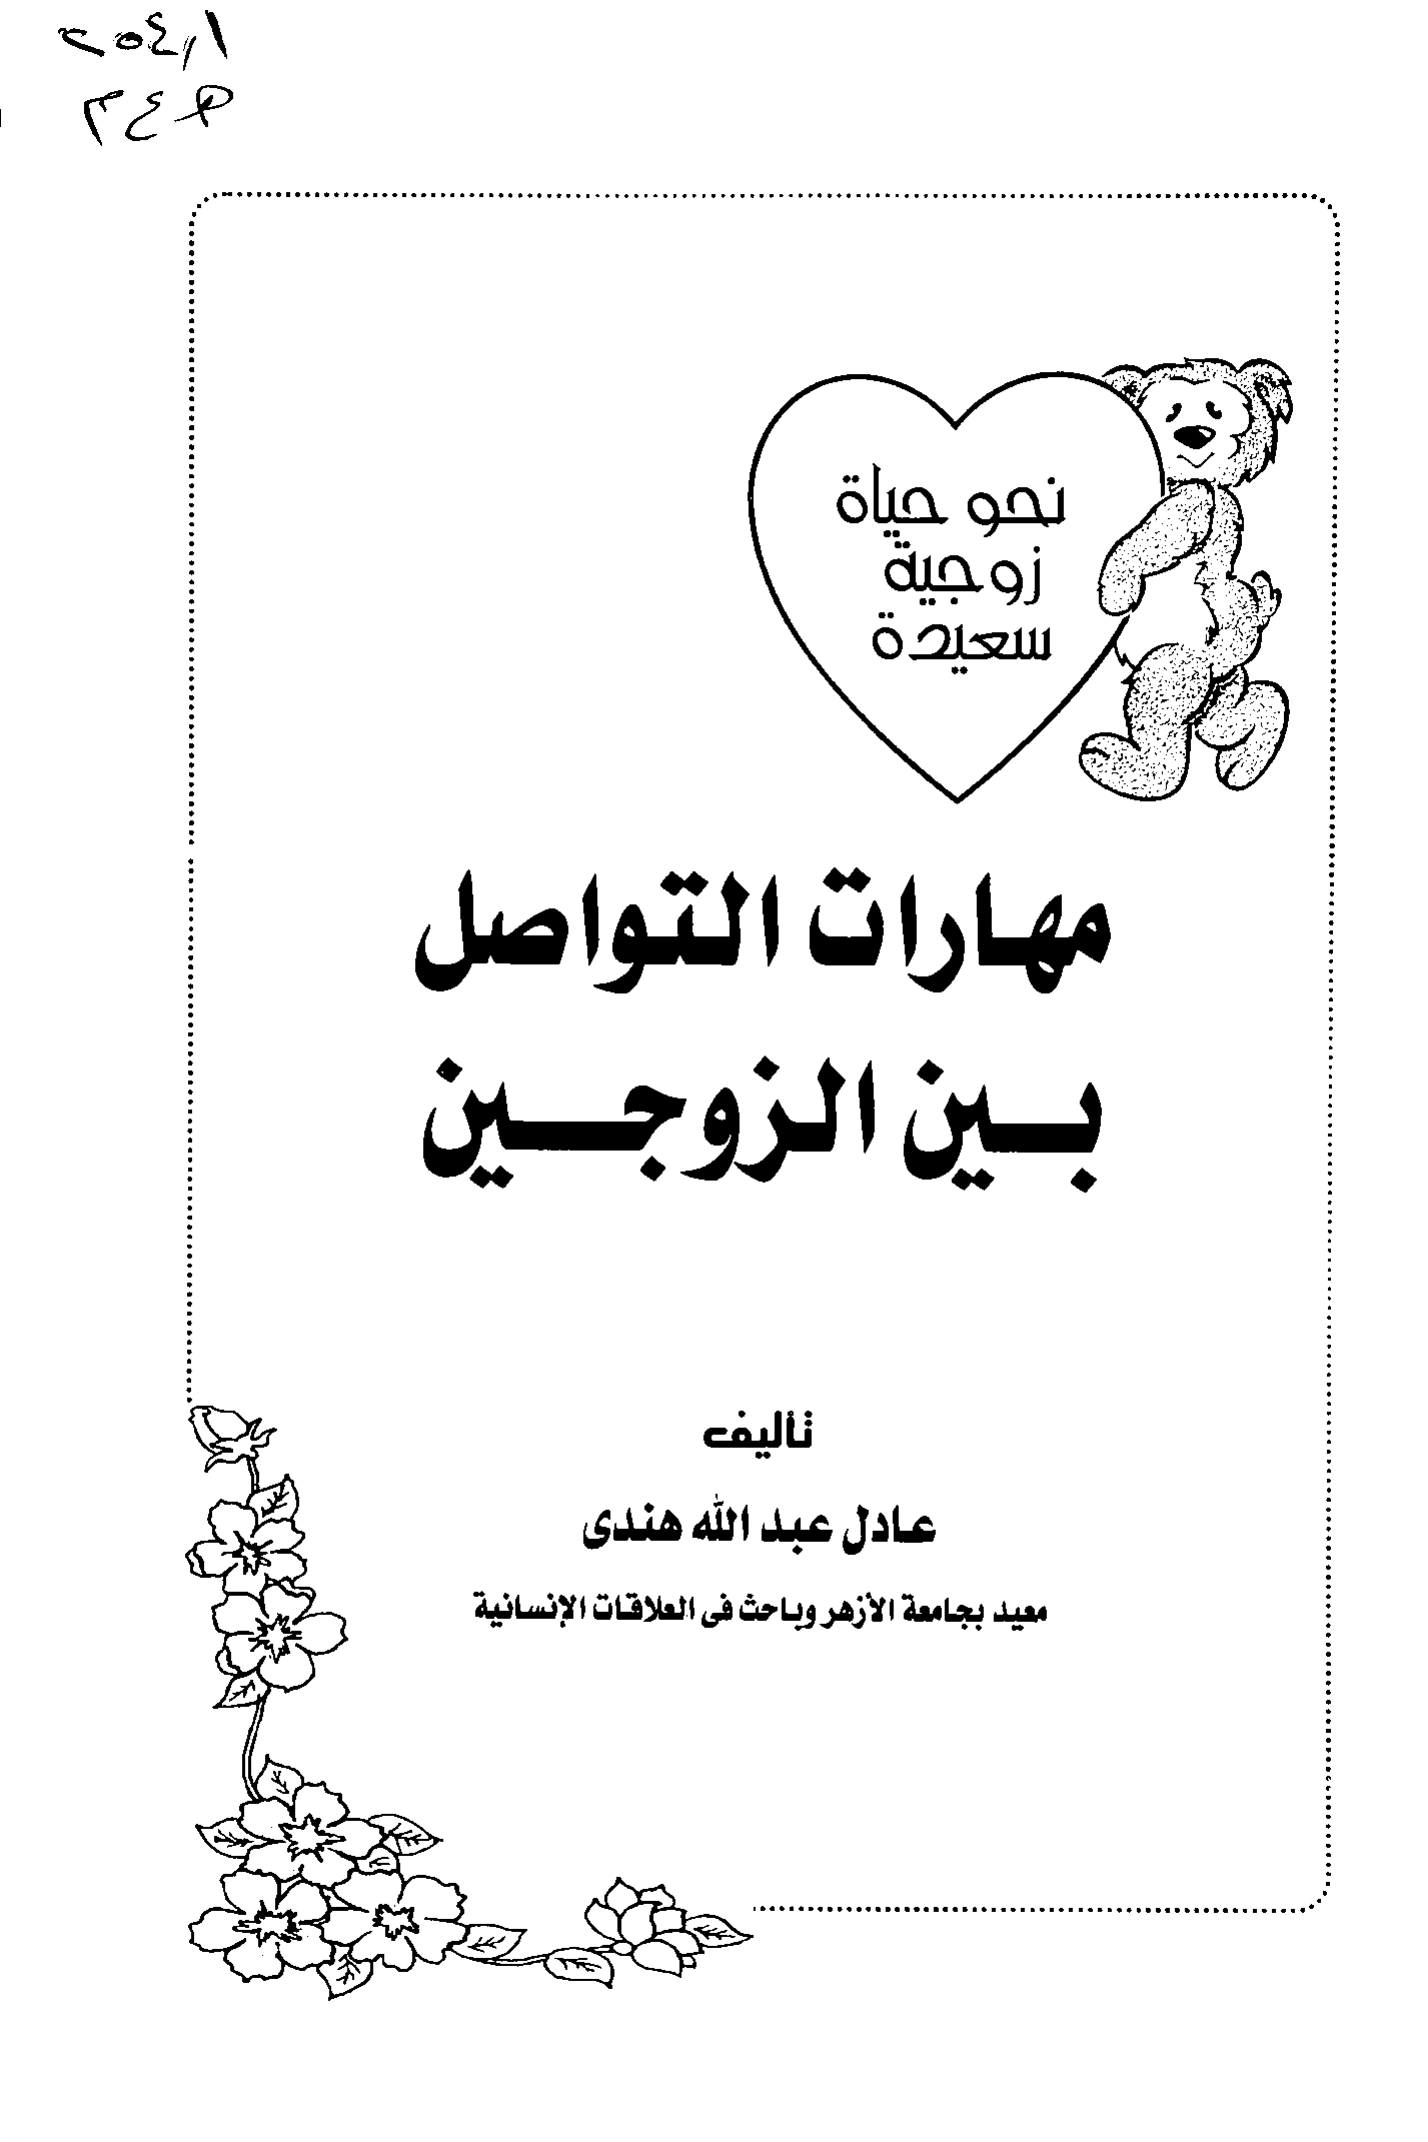 نحو حياة
زوجية
سعيدة
مهارات التواصل
بين الزوجين
تأليف
عادل عبد الله هندى
معيد بجامعة الأزهر وباحث فى العلاقات الإنسانية